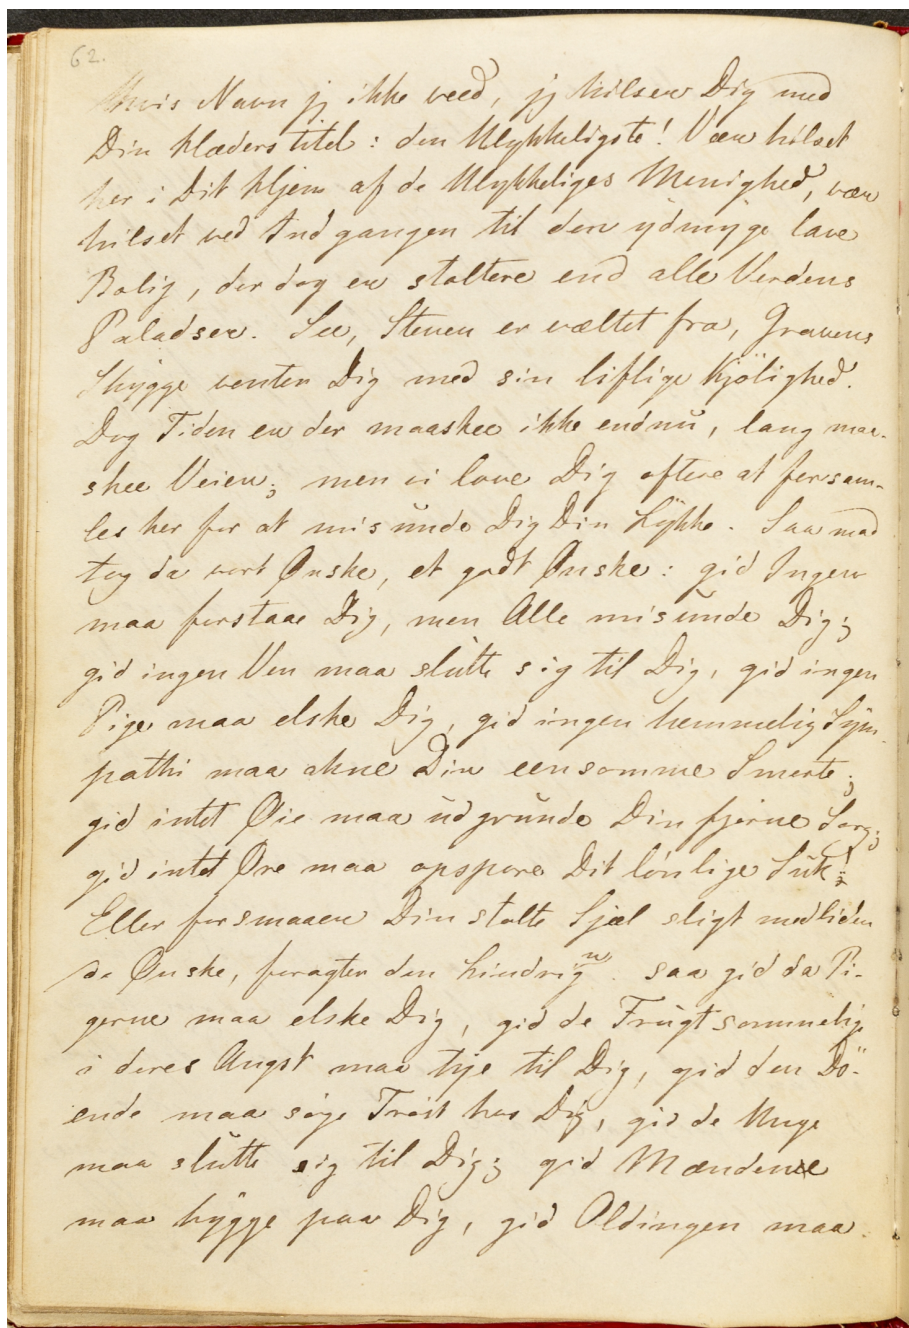 62.
hvis Navn jg ikke veed, jg hilser Dig med
Din Hæderstitel: den Ulykkeligste! Vær hilset
her i Dit Hjem af de Ulykkeliges Menighed, vær
hilset ved Indgangen til den ydmyge lave
Bolig, der dog er stoltere end alle Verdens
Paladser. See, Stenen er væltet fra, Gravens
Skygge venter Dig med sin liflige Kjölighed.
Dog Tiden er der maaskee ikke endnu, lang maa-
skee Veien; men vi love Dig oftere at forsam-
les her for at misunde Dig Din Lykke. Saa mod
tag da vort Ønske, et godt Ønske: gid Ingen
maa forstaae Dig, men Alle misunde Dig;
gid ingen Ven maa slutte sig til Dig, gid ingen
Pige maa elske Dig, gid ingen hemmelig Sym-
pathi maa ahne Din eensomme Smerte;
gid intet Øie maa udgrunde Din fjerne Sorg;
gid intet Øre maa opspore Dit lönlige Suk!
Eller forsmaaer Din stolte Sjæl sligt medliden
de Ønske, foragter den Lindrign saa gid da Pi-
gerne maa elske Dig, gid de Frugtsommelige
i deres Angst maa tye til Dig, gid den Dö-
ende maa söge Tröst hos Dig, gid de Unge
maa slutte sig til Dig; gid Mændene
maa bygge paa Dig, gid Oldingen maa